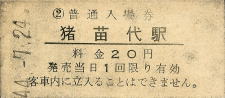 ②普通入場券
猪苗代駅
料金20円
発売当日1回限り有効
客車内に立入ることはできません。
44.-7.24